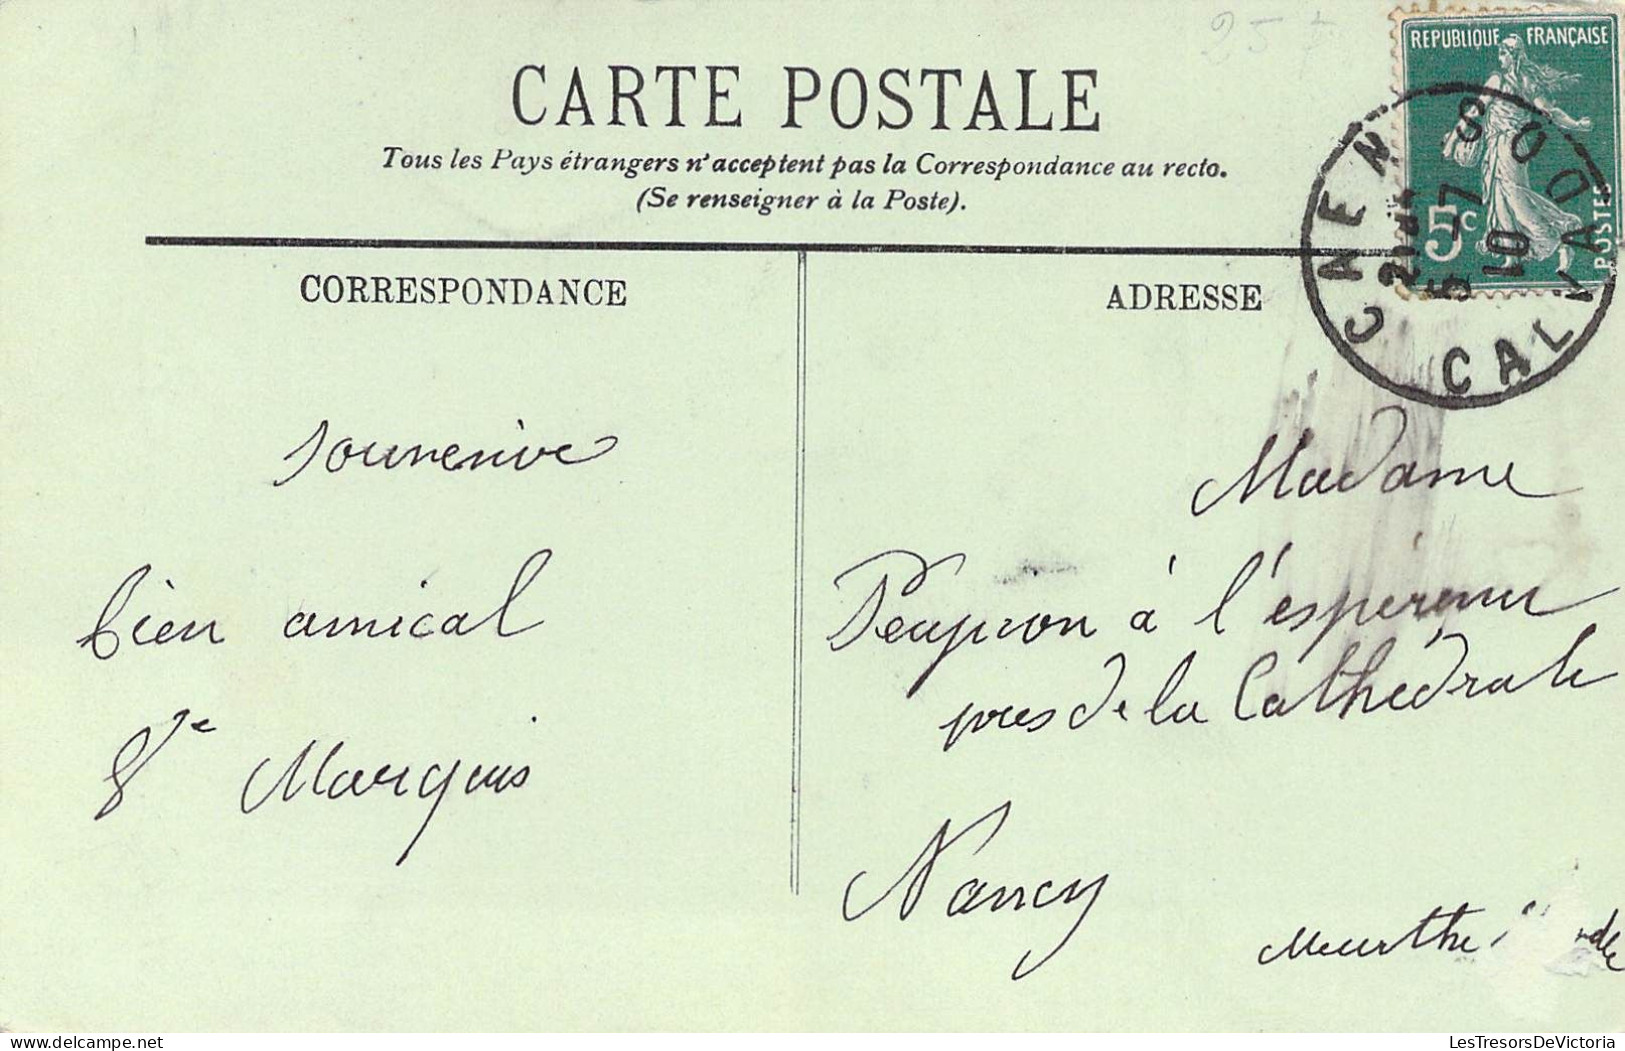 25
CARTE POSTALE
Tous les Pays étrangers n'acceptent pas la Correspondance au recto.
(Se renseigner à la Poste).
REPUBLIQUE FRANÇAISE
5c
POSTES
CAEN
CALVADOS
5-7
10
CORRESPONDANCE
ADRESSE
souvenire
bien amical
Vve Marquis
Madame
à l'
pres de la Cathédrale
Nancy
Meurthe
LesTresorsDeVictoria